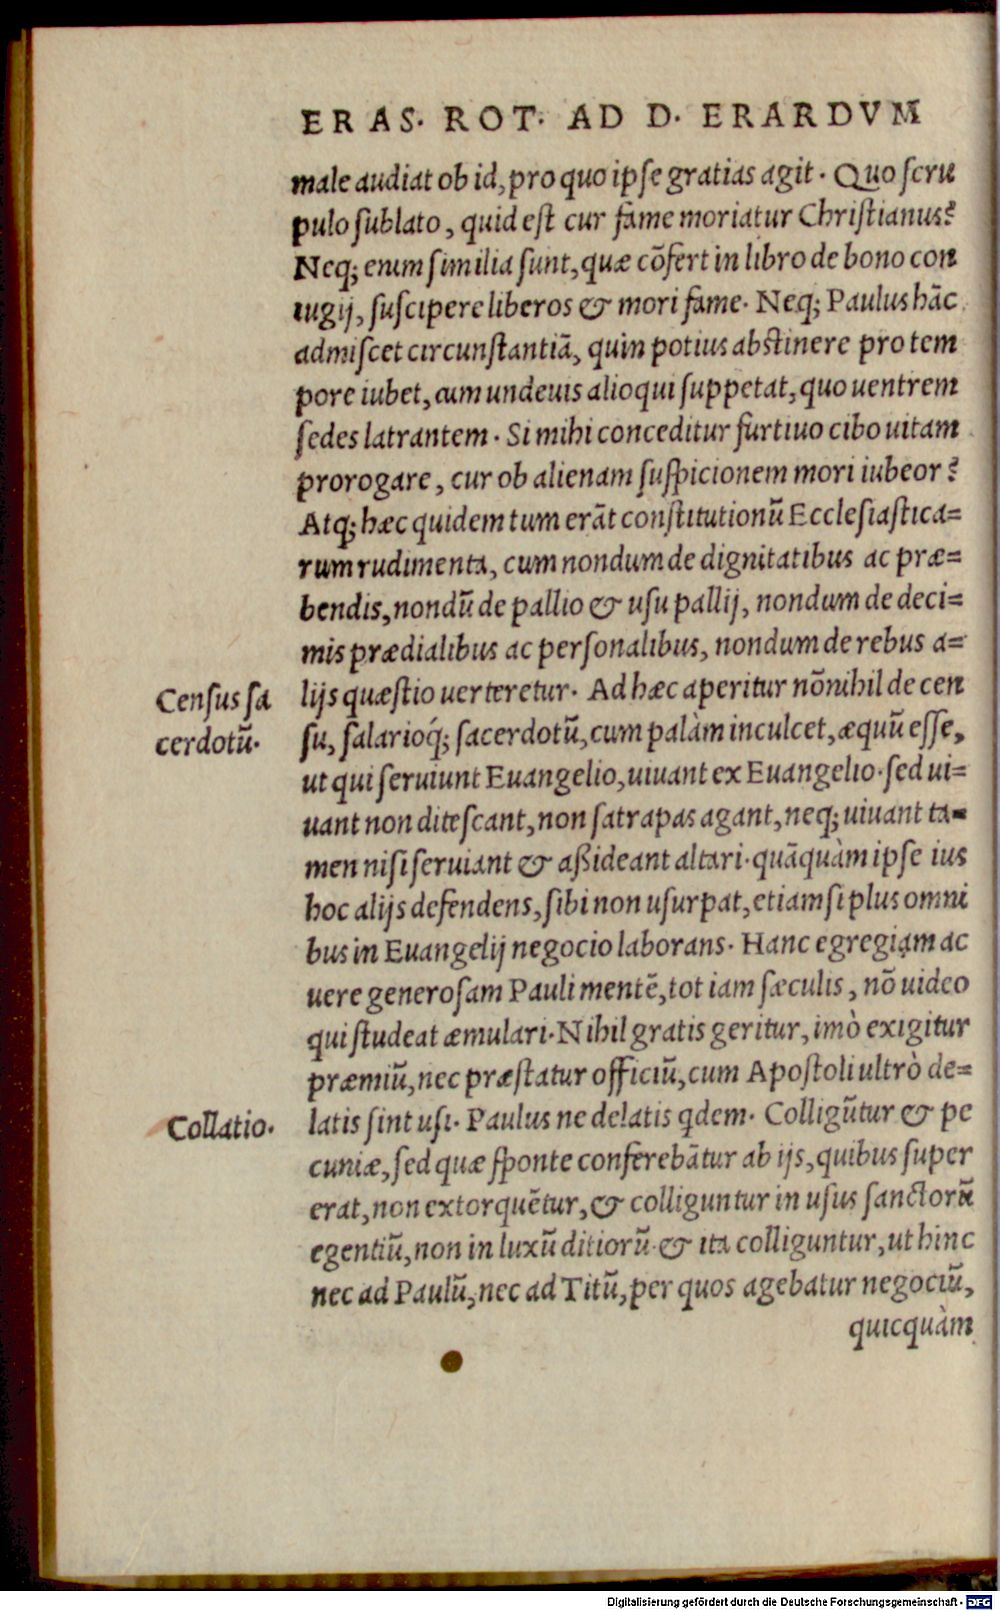 ERAS. ROT. AD D. ERARDVM
male audiat ob id, pro quo ipſe gratias agit. Quo ſcru
pulo ſublato, quid eſt cur fame moriatur Chriſtianus?
Neq; enim ſimilia ſunt, quæ cõfert in libro de bono con
iugij, ſuſcipere liberos & mori fame. Neq; Paulus hãc
admiſcet circunſtantiã, quin potius abſtinere pro tem
pore iubet, cum undeuis alioqui ſuppetat, quo uentrem
ſedes latrantem. Si mihi conceditur furtiuo cibo uitam
prorogare, cur ob alienam ſuſpicionem mori iubeor?
Atq; hæc quidem tum erãt conſtitutionũ Eccleſiaſtica=
rum rudimenta, cum nondum de dignitatibus ac præ=
bendis, nondũ de pallio & uſu pallij, nondum de deci=
mis prædialibus ac perſonalibus, nondum de rebus a=
Cenſus ſa
cerdotũ.
lijs quæſtio uerteretur. Ad hæc aperitur nõnihil de cen
ſu, ſalarioq́; ſacerdotũ, cum palàm inculcet, æquũ eſſe,
ut qui ſeruiunt Euangelio, uiuant ex Euangelio. ſed ui=
uant non diteſcant, non ſatrapas agant, neq; uiuant ta=
men niſi ſeruiant & aßideant altari. quãquàm ipſe ius
hoc alijs defendens, ſibi non uſurpat, etiam ſi plus omni
bus in Euangelij negocio laborans. Hanc egregiam ac
uere generoſam Pauli mentẽ, tot iam ſæculis, nõ uideo
qui ſtudeat æmulari. Nihil gratis geritur, imò exigitur
præmiũ, nec præſtatur officiũ, cum Apoſtoli ultrò de=
Collatio.
latis ſint uſi. Paulus ne delatis qdem. Colligũtur & pe
cuniæ, ſed quæ ſponte conferebãtur ab ijs, quibus ſuper
erat, non extorquẽtur, & colliguntur in uſus ſanctorũ
egentiũ, non in luxũ ditiorũ. & ita colliguntur, ut hinc
nec ad Paulũ, nec ad Titũ, per quos agebatur negociũ,
quicquàm
Digitalisierung gefördert durch die Deutsche Forschungsgemeinschaft - DFG